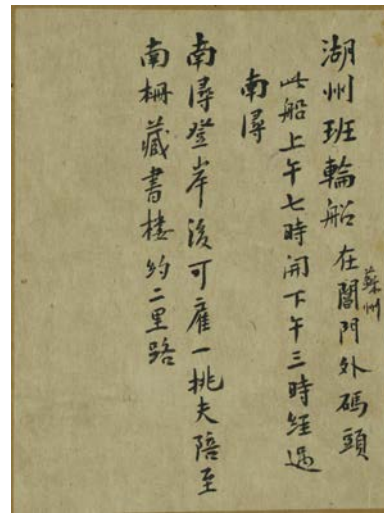 湖州班輪船在閶門外碼頭
蘇州
此船上午七時開下午三時經過
南潯
南潯登岸後可雇一挑夫陪至
南柵藏書樓約二里路